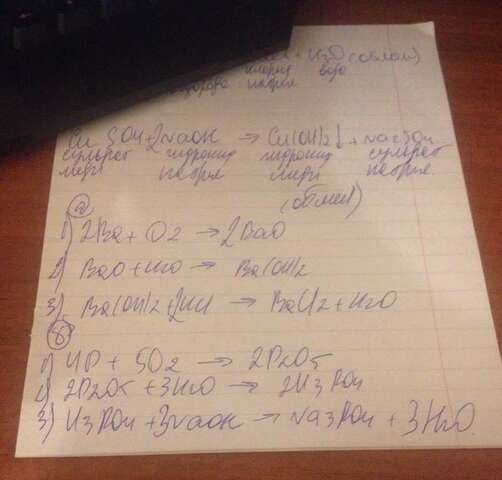 + H2O (обмен)
хлорид вода
водорода натрия
CuSO4 + 2NaOH → Cu(OH)2↓ + Na2SO4
сульфат гидроксид гидроксид сульфат
меди натрия меди натрия
(обмен)
а
1) 2Ba + O2 → 2BaO
2) BaO + H2O → Ba(OH)2
3) Ba(OH)2 + 2HCl → BaCl2 + H2O
б
1) 4P + 5O2 → 2P2O5
2) 2P2O5 + 3H2O → 2H3PO4
3) H3PO4 + 3NaOH → Na3PO4 + 3H2O